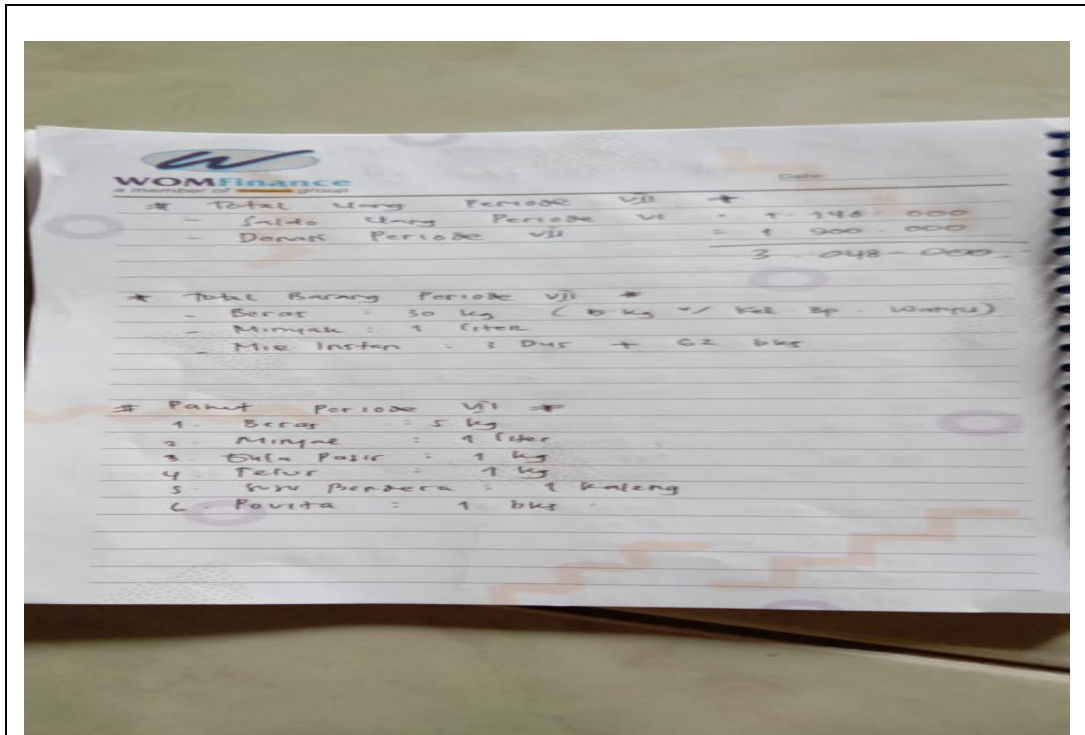 WOMFinance
a member of group
Date
* Total Uang Periode VII *
- Saldo Uang Periode VI = 1.148.000
- Donasi Periode VII = 1.900.000
3.048.000
* Total Barang Periode VII *
- Beras : 30 kg ( kg Kel. Bp. Wahyu)
- Minyak : 1 Liter
- Mie Instan : 3 Dus + 62 bks
* Paket Periode VII *
1. Beras : 5 kg
2. Minyak : 1 Liter
3. Gula Pasir : 1 kg
4. Telur : 1 kg
5. Susu Bendera : 1 Kaleng
6. Povita : 1 bks